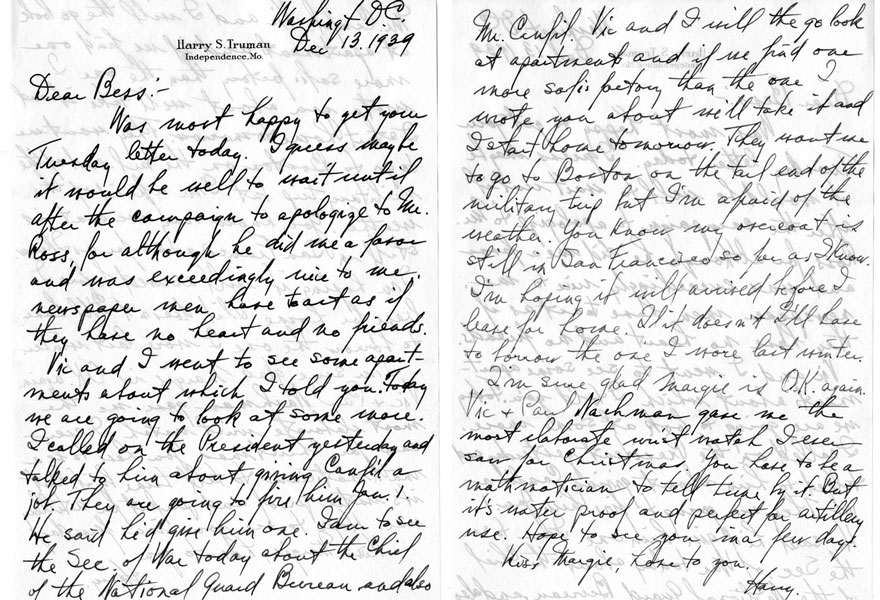 Washingt. D.C.
Dec 13. 1939
Harry S. Truman
Independence, Mo.
Dear Bess:-
Was most happy to get your
Tuesday letter today. I guess maybe
it would be well to wait until
after the campaign to apologize to Mr.
Ross, for although he did me a favor
and was exceedingly nice to me.
newspaper men have to act as if
they have no heart and no friends.
Vic and I went to see some apart-
ments about which I told you. Today
we are going to look at some more.
I called on the President yesterday and
talked to him about giving Canfil a
job. They are going to fire him Jan. 1.
He said he'd give him one. I am to see
the Sec. of War today about the Chief
of the National Guard Bureau and also
Mr. Canfil. Vic and I will the go look
at apartments and if we find one
more satisfactory than the one I
wrote you about will take it and
I start home tomorrow. They want me
to go to Boston on the tail end of the
military trip but I'm afraid of the
weather. You know my overcoat is
still in San Francisco so far as I know.
I'm hoping it will arrived before I
leave for home. If it doesn't I'll have
to borrow the one I wore last winter.
I'm sure glad Margie is O.K. again.
Vic + Paul Nachman gave me the
most elaborate wrist watch I ever
saw for Christmas. You have to be a
mathmatician to tell time by it. But
it's water proof and perfect for artillery
use. Hope to see you in a few days.
Kiss Margie, love to you.
Harry.